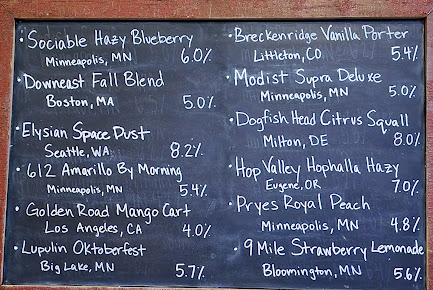 • Sociable Hazy Blueberry
Minneapolis, MN 6.0%
• Downeast Fall Blend
Boston, MA 5.0%
• Elysian Space Dust
Seattle, WA 8.2%
• 612 Amarillo By Morning
Minneapolis, MN 5.4%
• Golden Road Mango Cart
Los Angeles, CA 4.0%
• Lupulin Oktoberfest
Big Lake, MN 5.7%
• Breckenridge Vanilla Porter
Littleton, CO 5.4%
• Modist Supra Deluxe
Minneapolis, MN 5.0%
• Dogfish Head Citrus Squall
Milton, DE 8.0%
• Hop Valley Hophalla Hazy
Eugene, OR 7.0%
• Pryes Royal Peach
Minneapolis, MN 4.8%
• 9 Mile Strawberry Lemonade
Bloomington, MN 5.6%